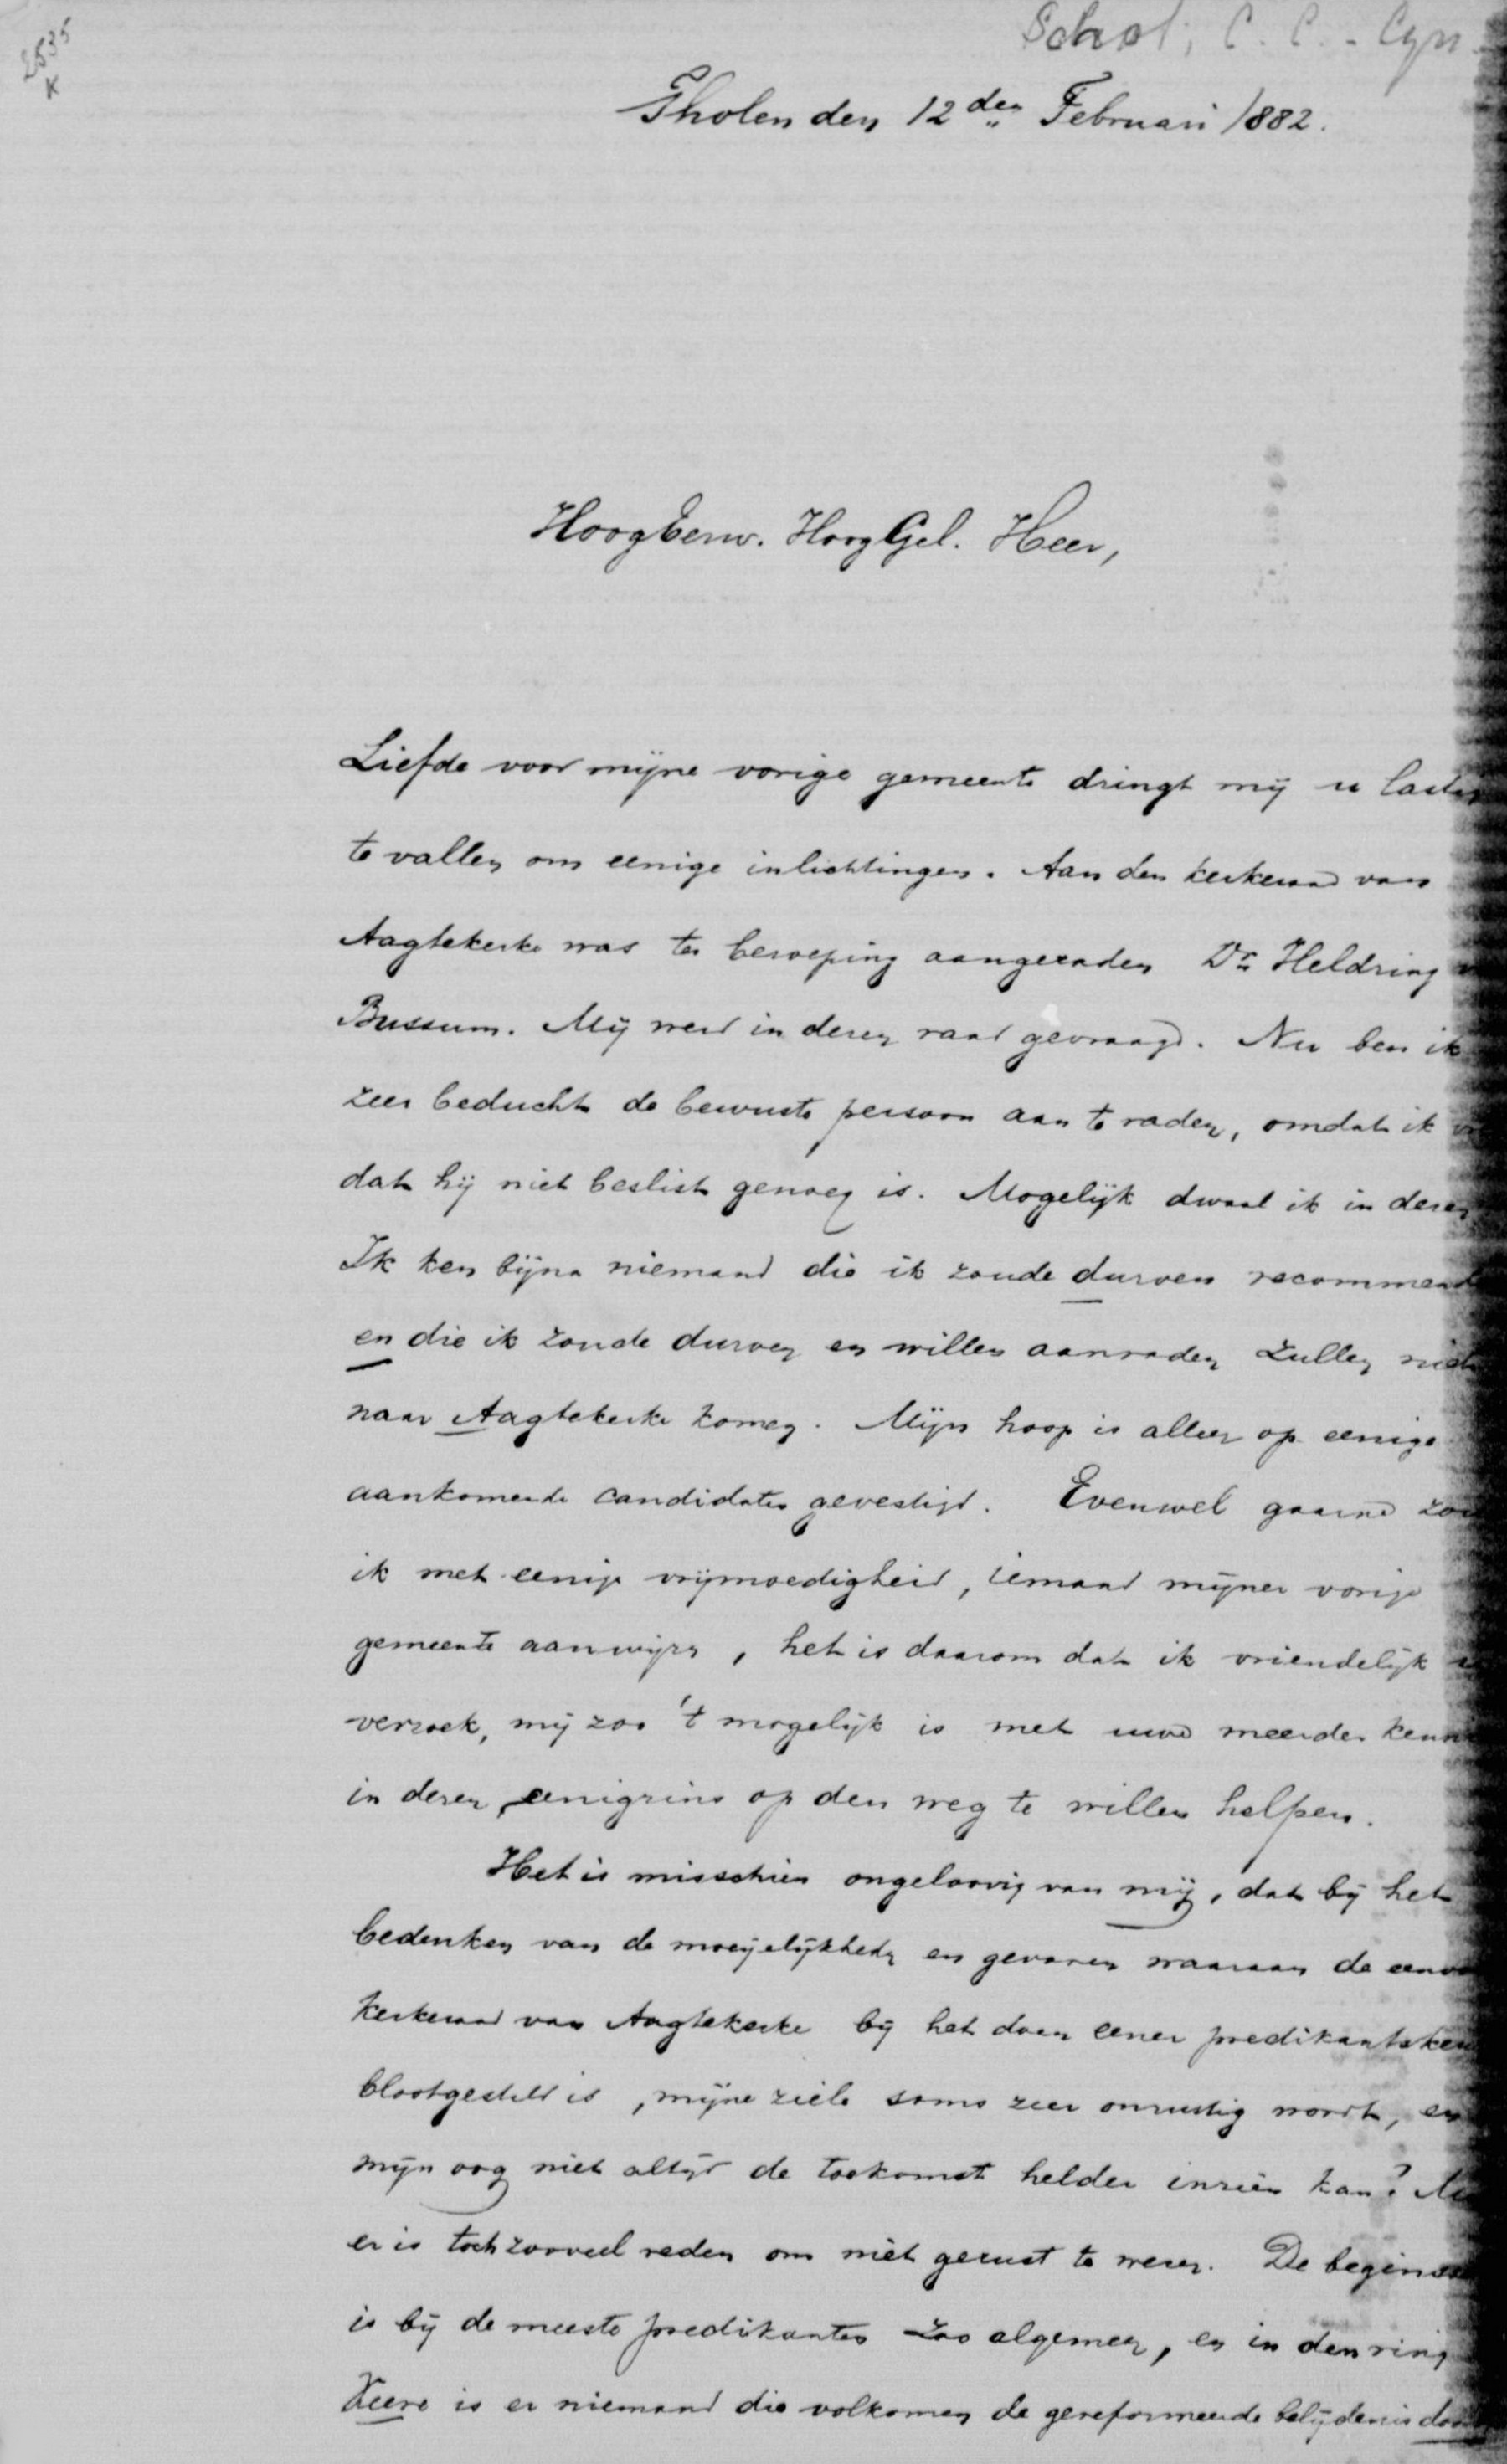 2535
K
Schot, C. C. - Czn
Tholen den 12den Februari 1882.
Hoogeerw. HoogGel. Heer,
Liefde voor mijne vorige gemeente dringt mij u lastig
te vallen om eenige inlichtingen. Aan den kerkeraad van
Aagtekerke was ter beroeping aangeraden Dr Heldring
Bussum. Mij werd in dezen raad gevraagd. Nu ben ik
zeer beducht de bewuste persoon aan te raden, omdat ik
dat hij niet beslist genoeg is. Mogelijk dwaal ik in dezen
Ik ken bijna niemand die ik zoude durven recommand
en die ik zoude durven en willen aanraden zullen niet
naar Aagtekerke komen. Mijn hoop is alleen op eenige
aankomende candidaten gevestigd. Evenwel gaarne zou
ik met eenige vrijmoedigheid, iemand mijner vorige
gemeente aanwijzen, het is daarom dat ik vriendelijk
verzoek, mij zoo 't mogelijk is met uwe meerder kennis
in dezen, eenigzins op den weg te willen helpen.
Het is misschien ongeloovig van mij, dat bij het
bedenken van de moeijelijkheden en gevaren waaraan de eenv
kerkeraad van Aagtekerke bij het doen eener predikantskeu
blootgesteld is, mijne ziele soms zeer onrustig wordt, en
mijn oog niet altijd de toekomst helder inzien kan?
er is toch zooveel reden om niet gerust te wezen. De beginse
is bij de meeste predikanten zoo algemeen, en in den ring
Veere is er niemand die volkomen de gereformeerde belijdenis